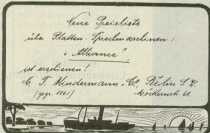 Neue Preisliste
über Platten-Sprechmaschinen!
"Alliance"
ist erschienen!
C. T. Windermann, Berlin S.
(gegr. 1865)